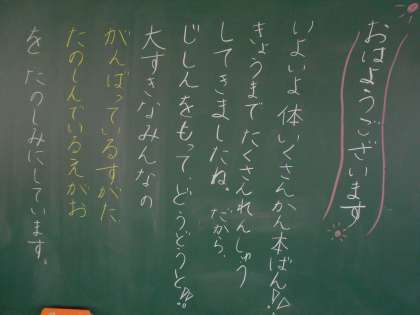 おはようございます
いよいよ体いくさんかん本ばん!!
きょうまでたくさんれんしゅう
してきましたね。だから、
じしんをもって、どうどうと!!
大すきなみんなの
がんばっているすがた
たのしんでいるえがお
をたのしみにしています。